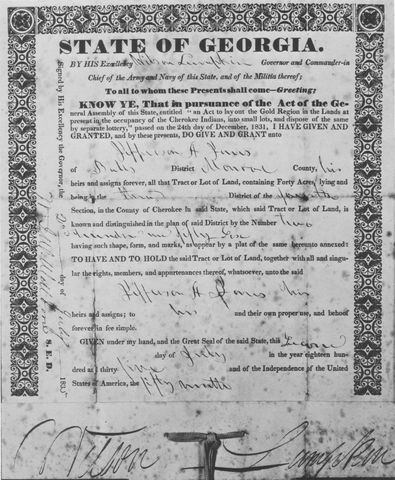 STATE OF GEORGIA.
BY HIS Excellency Wilson Lumpkin Governor and Commander-in
Chief of the Army and Navy of this State, and of the Militia thereof;
To all to whom these Presents shall come—Greeting;
KNOW YE, That in pursuance of the Act of the Ge-
neral Assembly of this State, entitled "an Act to lay out the Gold Region in the Lands at
present in the occupancy of the Cherokee Indians, into small lots, and dispose of the same
by separate lottery," passed on the 24th day of December, 1831, I HAVE GIVEN AND
GRANTED, and by these presents, DO GIVE AND GRANT unto
Jefferson A. Jones
of District Monroe County, his
heirs and assigns forever, all that Tract or Lot of Land, containing Forty Acres, lying and
being in the District of the fourth
Section, in the County of Cherokee in said State, which said Tract or Lot of Land, is
known and distinguished in the plan of said District by the Number two
hundred fifty
having such shape, form, and marks, as appear by a plat of the same hereunto annexed:
TO HAVE AND TO HOLD the said Tract or Lot of Land, together with all and singu-
lar the rights, members, and appurtenances thereof, whatsoever, unto the said
Jefferson A Jones his
heirs and assigns; to his and their own proper use, and behoof
forever in fee simple.
GIVEN under my hand, and the Great Seal of the said State, this Second
day of July in the year eighteen hun-
dred at thirty five and of the Independence of the United
States of America, the fifty ninth
Signed by His Excellency the Governor, the
day of July 1835
S. E. D.
Wilson Lumpkin